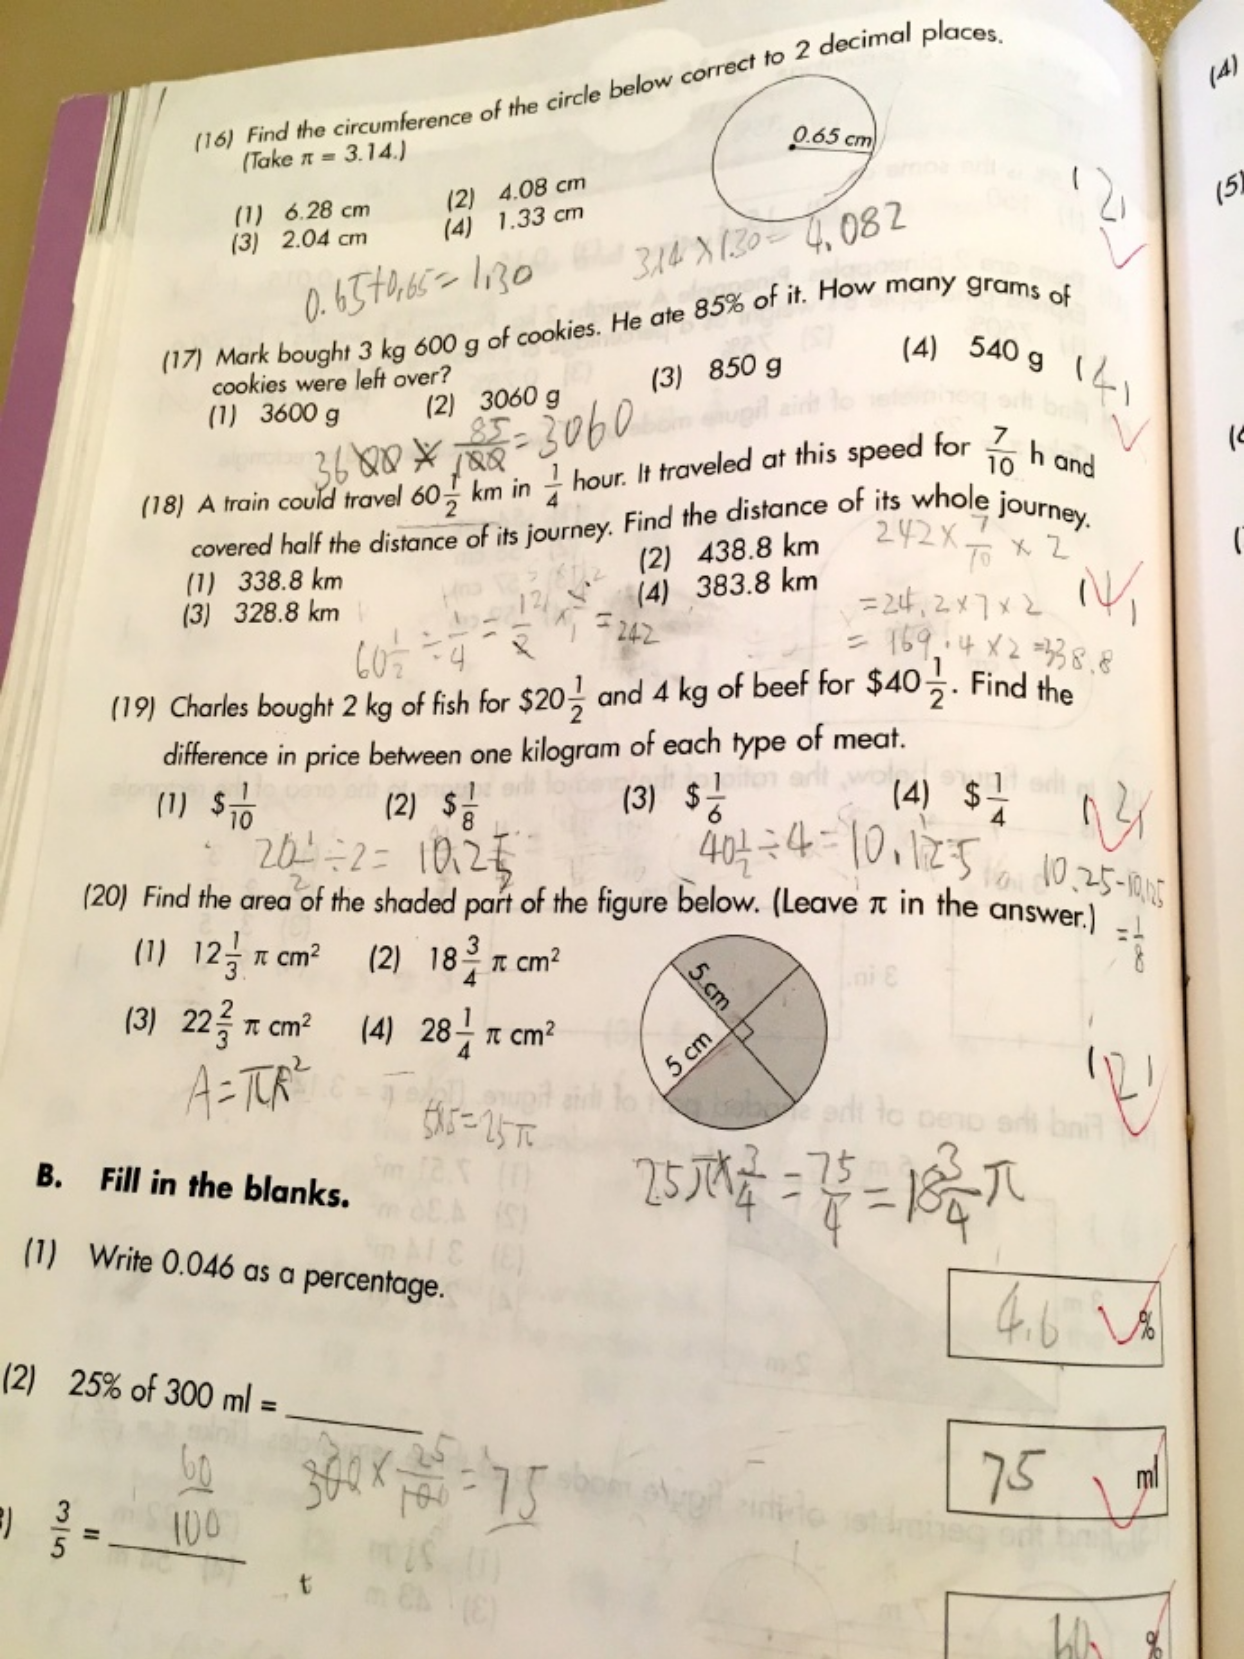 (16) Find the circumference of the circle below correct to 2 decimal places.
(Take π = 3.14.)
0.65 cm
(1) 6.28 cm (2) 4.08 cm
(3) 2.04 cm (4) 1.33 cm
(2)
0.65+0.65=1.30
3.14×1.30=4.082
(17) Mark bought 3 kg 600 g of cookies. He ate 85% of it. How many grams of
cookies were left over?
(1) 3600 g (2) 3060 g (3) 850 g (4) 540 g
(4)
3600 × 85/100 = 3060
(18) A train could travel 60 1/2 km in 1/4 hour. It traveled at this speed for 7/10 h and
covered half the distance of its journey. Find the distance of its whole journey.
(1) 338.8 km (2) 438.8 km
(3) 328.8 km (4) 383.8 km
60 1/2 ÷ 1/4 = 121/2 × 4/1 = 242
242 × 7/10 × 2
=24.2×7×2
=169.4×2=338.8
(19) Charles bought 2 kg of fish for $20 1/2 and 4 kg of beef for $40 1/2. Find the
difference in price between one kilogram of each type of meat.
(1) $ 1/10 (2) $ 1/8 (3) $ 1/6 (4) $ 1/4
(2)
20 1/2 ÷ 2 = 10.25
40 1/2 ÷ 4 = 10.125
10.25-10.125
= 1/8
(20) Find the area of the shaded part of the figure below. (Leave π in the answer.)
(1) 12 1/3 π cm² (2) 18 3/4 π cm²
(3) 22 2/3 π cm² (4) 28 1/4 π cm²
5 cm
5 cm
(2)
A=πR²
5×5=25π
25π× 3/4 = 75/4 = 18 3/4 π
B. Fill in the blanks.
(1) Write 0.046 as a percentage.
4.6 %
(2) 25% of 300 ml =
300 × 25/100 = 75
75 ml
3/5 = 60/100
t
60 %
(4)
(5)